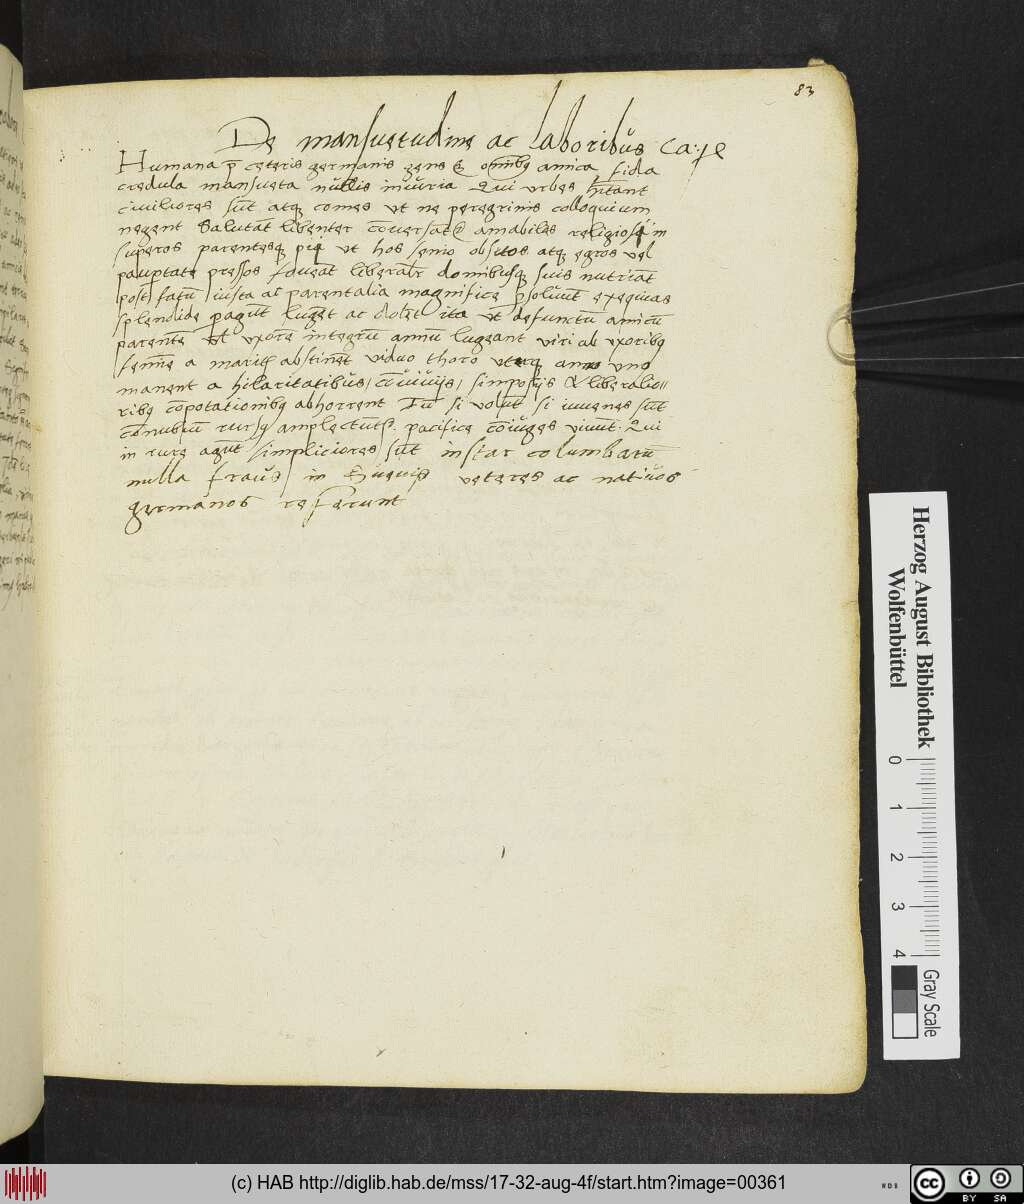 83
De mansuetudine ac laboribus Ca:
Humana p̄ ceteris germanis gens & om̄ibꝯ amica fida
credula mansueta nullis iniuria Qui vrbes hītant
civiliores sūt atqꝫ comes vt ne peregrinis colloquium
negent Salutāt libenter cōversat amabiles religiosi in
superos parentesqꝫ pij vt hos senio obsitos atqꝫ egros vel
paup̄tate pressos foveāt liberalr̄ domibusqꝫ suis nutriāt
post fatū iusta ac parentalia magnifice p̄solvūt exequias
splendide pagūt lugēt ac dolēt ita vt defunctū amicū
parentē vl vxorē integrū annū lugeant viri ab vxoribꝯ
femīe a maritꝭ abstinēt viduo thoro uterqꝫ anno vno
manent a hilaritatibus / cōuiuijs / simposijs & liberalio//
ribꝯ cōpotationibꝯ abhorrent Tū si volūt si iuuenes sūt
cōnubiū rursꝯ amplectūtꝰ. pacifice cōiuges viuūt: Qui
in rure agūt simpliciores sūt instar columbarū
nulla fraus / in Sueuis veteres ac nativos
germanos referunt
Herzog August Bibliothek
Wolfenbüttel
0 1 2 3 4
Gray Scale
(c) HAB http://diglib.hab.de/mss/17-32-aug-4f/start.htm?image=00361
cc BY SA